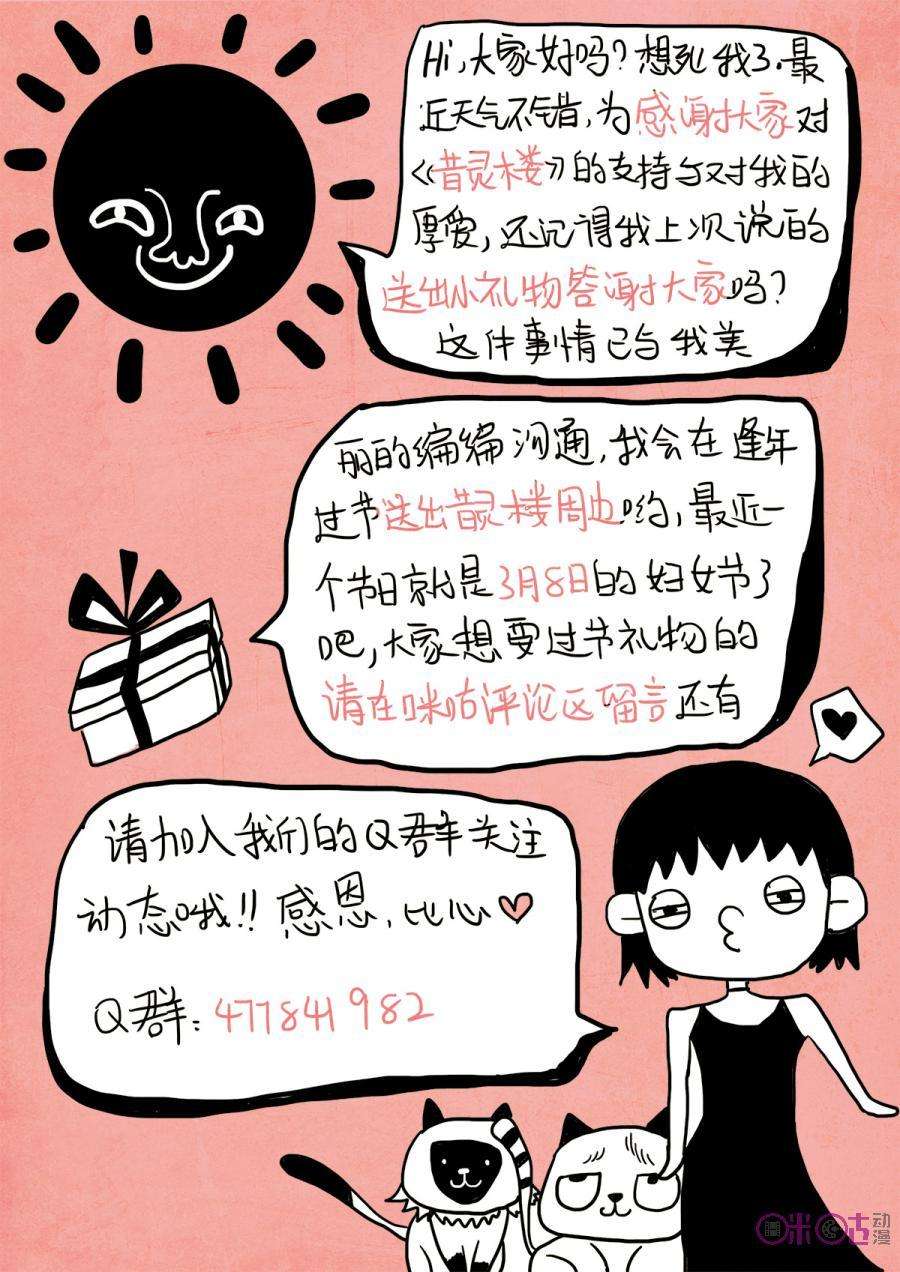 Hi,大家好吗?想死我了.最
近天气不错,为感谢大家对
《昔灵楼》的支持与对我的
厚爱,还记得我上次说的
送出小礼物答谢大家吗?
这件事情已与我美
丽的编编沟通,我会在逢年
过节送出昔灵楼周边哟,最近一
个节日就是3月8日的妇女节了
吧,大家想要过节礼物的
请在咪咕评论区留言还有
请加入我们的Q群关注
动态哦!!感恩,比心
Q群:477841982
咪咕动漫